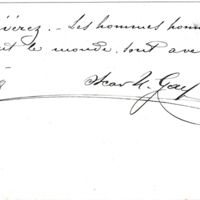 vérez. - Les hommes hon
it le monde, tout ave
Oscar U. Gay